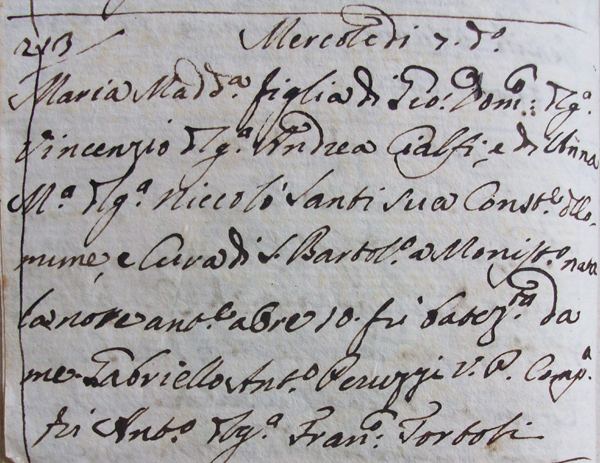 213/ Mercoledi 7. do.
Maria Madda. figlia di Gio: Domo: Dlga.
Vincenzio Dlga. Andrea Galfi, e di Anna
Ma. Dlga. Niccolò Santi sua Conste. d'lo
mune, e Cura di S. Bartolo. a Monisto. nata
la note ante. a bre 10. fù batezta. da
me Gabriello Anto. Peruzzi V. P. Compa.
fù Anto. Dlga. Frano: Tortoli